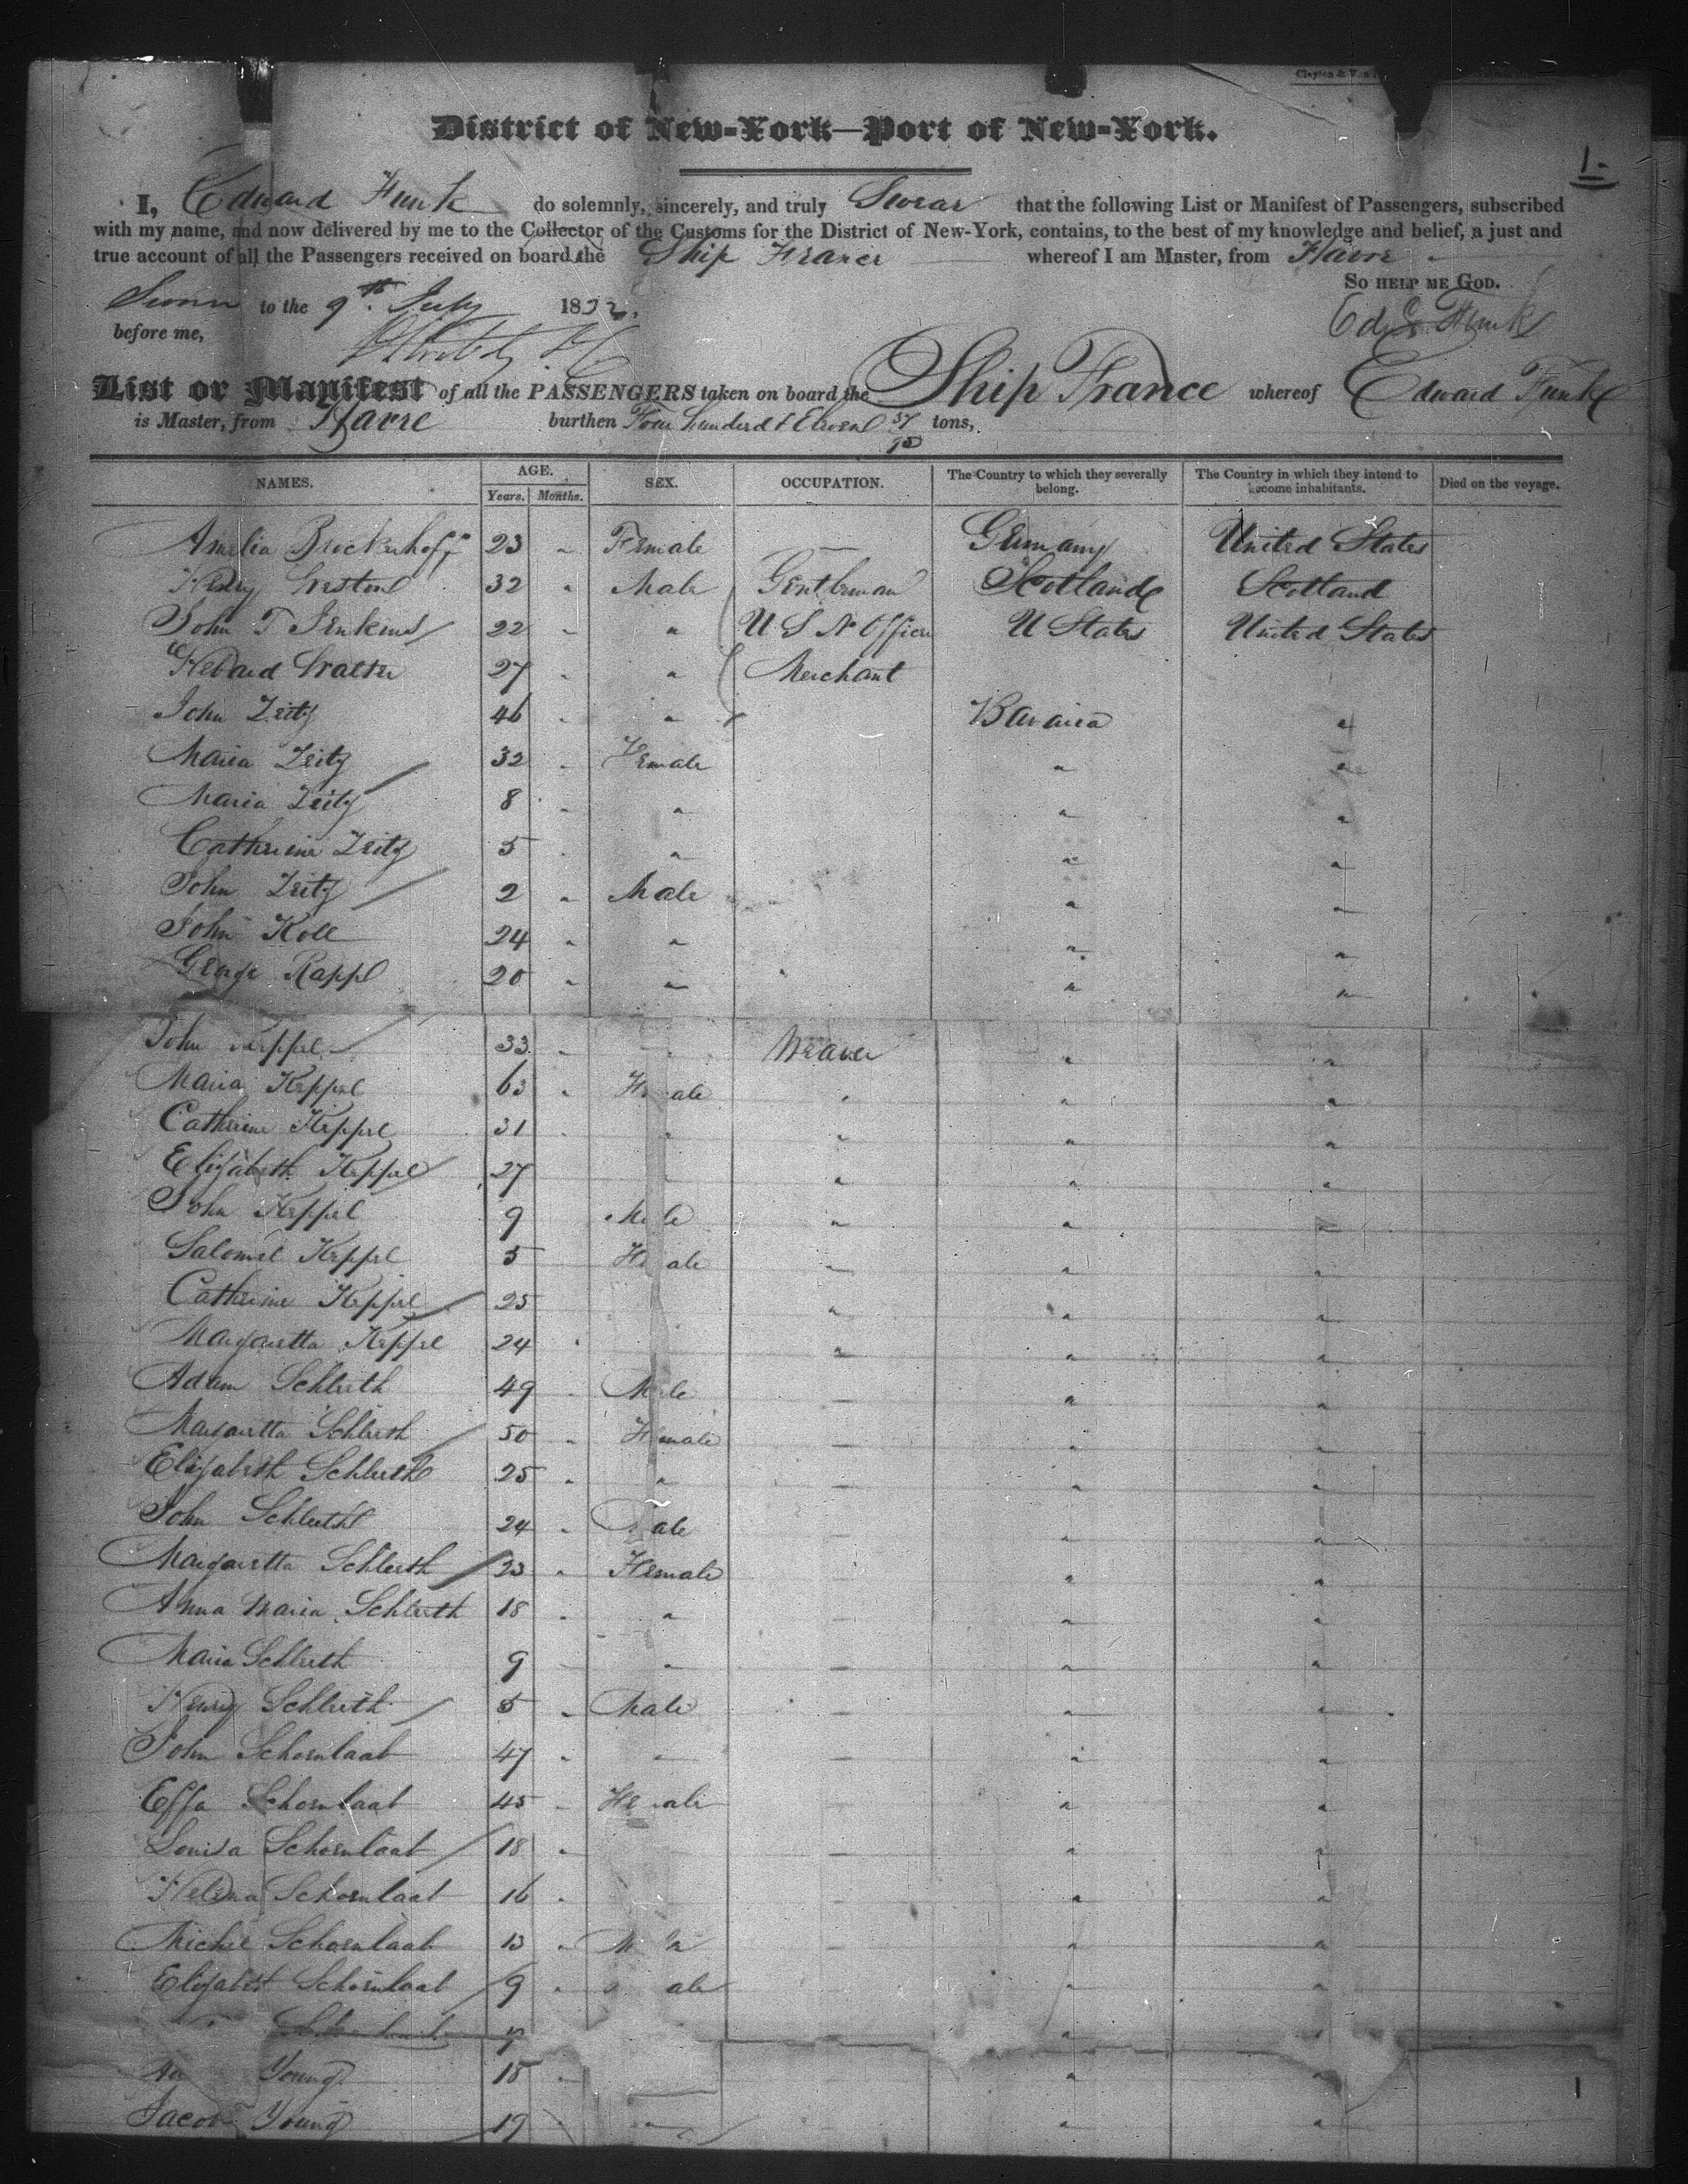 Clayton & Van
District of New-York—Port of New-York.
1-
I, Edward Funk do solemnly, sincerely, and truly Swear that the following List or Manifest of Passengers, subscribed
with my name, and now delivered by me to the Collector of the Customs for the District of New-York, contains, to the best of my knowledge and belief, a just and
true account of all the Passengers received on board the Ship France whereof I am Master, from Havre
So help me God.
Sworn to the 9th July 1832.
before me,
Ed. Funk
List or Manifest of all the PASSENGERS taken on board the Ship France whereof Edward Funk
is Master, from Havre burthen Four Hunderd & Eleven 37/95 tons,
NAMES. AGE. Years. Months. SEX. OCCUPATION. The Country to which they severally belong. The Country in which they intend to become inhabitants. Died on the voyage.
Amelia Brockenhoff 23 " Female — Germany United States
Henry 32 " Male Gentleman Scotland Scotland
John T Jenkins 22 " " U S N Officer U States United States
27 " " Merchant
John Zeitz 46 " " Bavaria "
Maria Zeitz 32 " Female " "
Maria Zeitz 8 " " " "
Catherine Zeitz 5 " " " "
John Zeitz 2 " Male " "
John Koll 24 " " " "
George Rappl 20 " " " "
John Keppel 33 " Weaver " "
Maria Keppel 63 " Female " " "
Catherine Keppel 31 " " " "
Elizabeth Keppel 27 " " "
John Keppel 9 Male " " "
Salomel Keppel 5 Female " " "
Catherine Keppel 25 " " "
Margaretta Keppel 24 " " " "
Adam Schleeth 49 " Male — " "
Margaretta Schleeth 50 " Female — " "
Elizabeth Schleeth 25 " " — " "
John Schleeth 24 " Male — " "
Margaretta Schleeth 23 " Female — " "
Anna Maria Schleeth 18 " " — " "
Maria Schleeth 9 " " — " "
Henry Schleeth 5 " Male — " "
John Schornlaab 47 " " — " "
Effa Schornlaab 45 " Female — " "
Louisa Schornlaab 18 " — " "
Helena Schornlaab 16 " — " "
Michel Schornlaab 13 " — " "
Elizabet Schornlaab 9 " — " "
" "
Young 18 " — " "
Jacob Young 19 " " " "